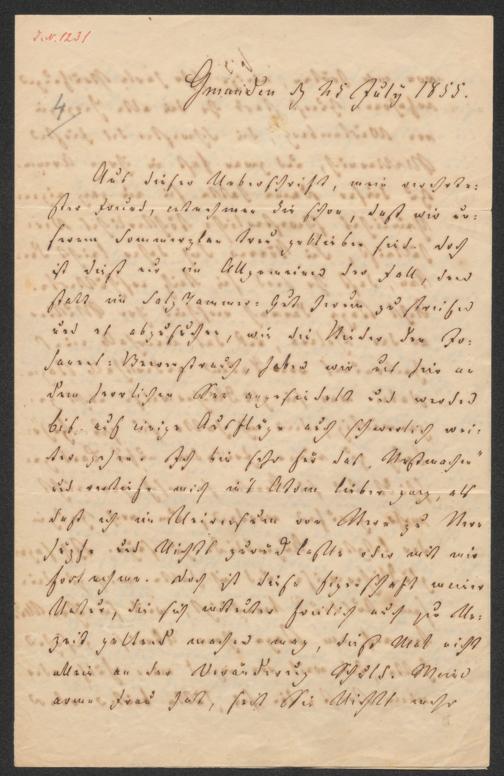 J.N. 1231
4
Gmunden d 25 July 1855.
Aus dieser Ueberschrift, mein verehrte-
ster Freund, entnehmen Sie schon, daß wir un-
serem Sommerplan treu geblieben sind. Doch
ist dieß nur im Allgemeinen der Fall, denn
statt im Salzkammer-Gut herum zu streifen
und es abzusuchen, wie die Kinder den Jo-
hannes-Beerenstrauch, haben wir uns hier an
dem herrlichen See angesiedelt und werden
bis auf einige Ausflüge auch schwerlich wei-
ter gehen. Ich bin sehr für das „Nestmachen"
und mich in's Atom lieber ganz, als
daß ich im von Stern zu Stern
hüpfe und Nichts zurück lasse oder mit mir
fort nehme. Doch ist diese Eigenschaft meiner
Natur, die sich mitunter freilich auch zur Un-
zeit geltend machen mag, dieß Mal nicht
allein an der Veränderung Schuld. Meine
arme Frau hat, seit Sie Nichts mehr